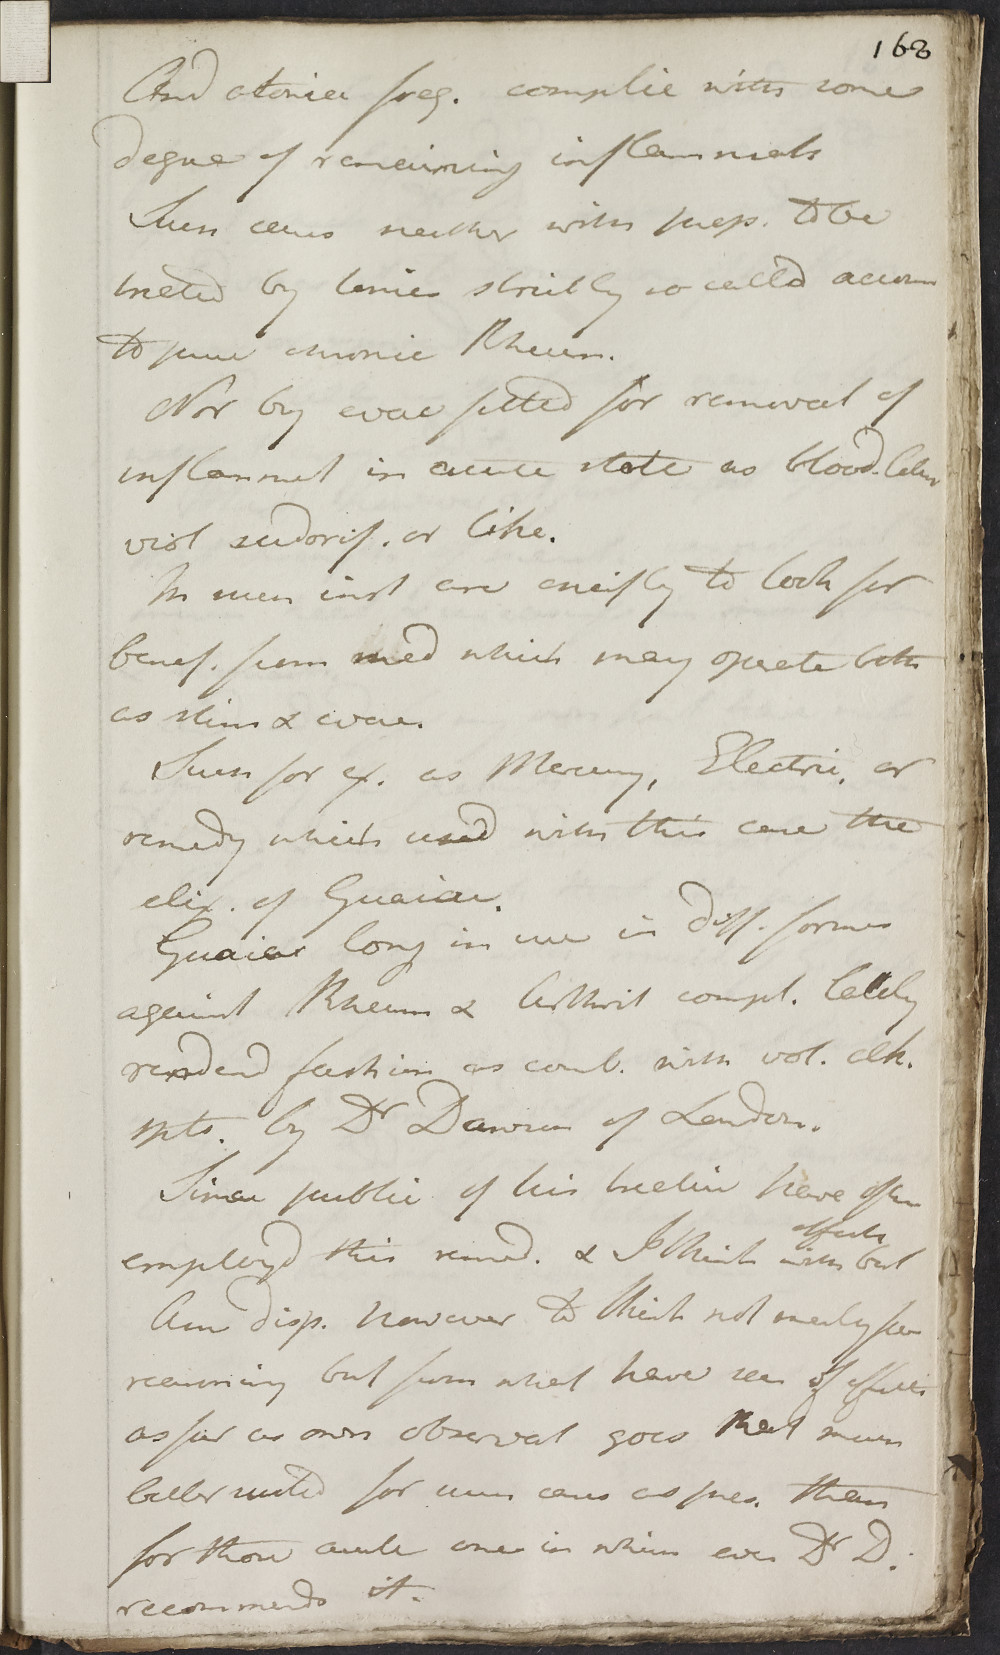 168
And atonia freq. complic with some
degree of remaining inflammat
Such cases neither with prop. to be
treted by tonics strictly so calld accom
to pure chronic Rheum.
Nor by evac fitted for removal of
inflammat in acute state as blood
viol sudorif. or like.
In such inst are cheifly to look for
benef. from med which may operate both
as stim & evac.
Such for ex. as Mercury, Electric, or
remedy which used with this case the
elix. of Guaiac.
Guaiac long in use in diff. formes
against Rheum & Arthrit compl. lately
renderd fashion as comb. with vol. alk.
spts. by Dr Dawson of London.
Since public of his treatise have often
employd this remed. & I think with best
effects
Am disp. however to think not merely from
reasoning but from what have seen of effects
as far as own observat goes that much
better suited for such cases as pres. than
for those acute ones in which even Dr D.
recommends it.